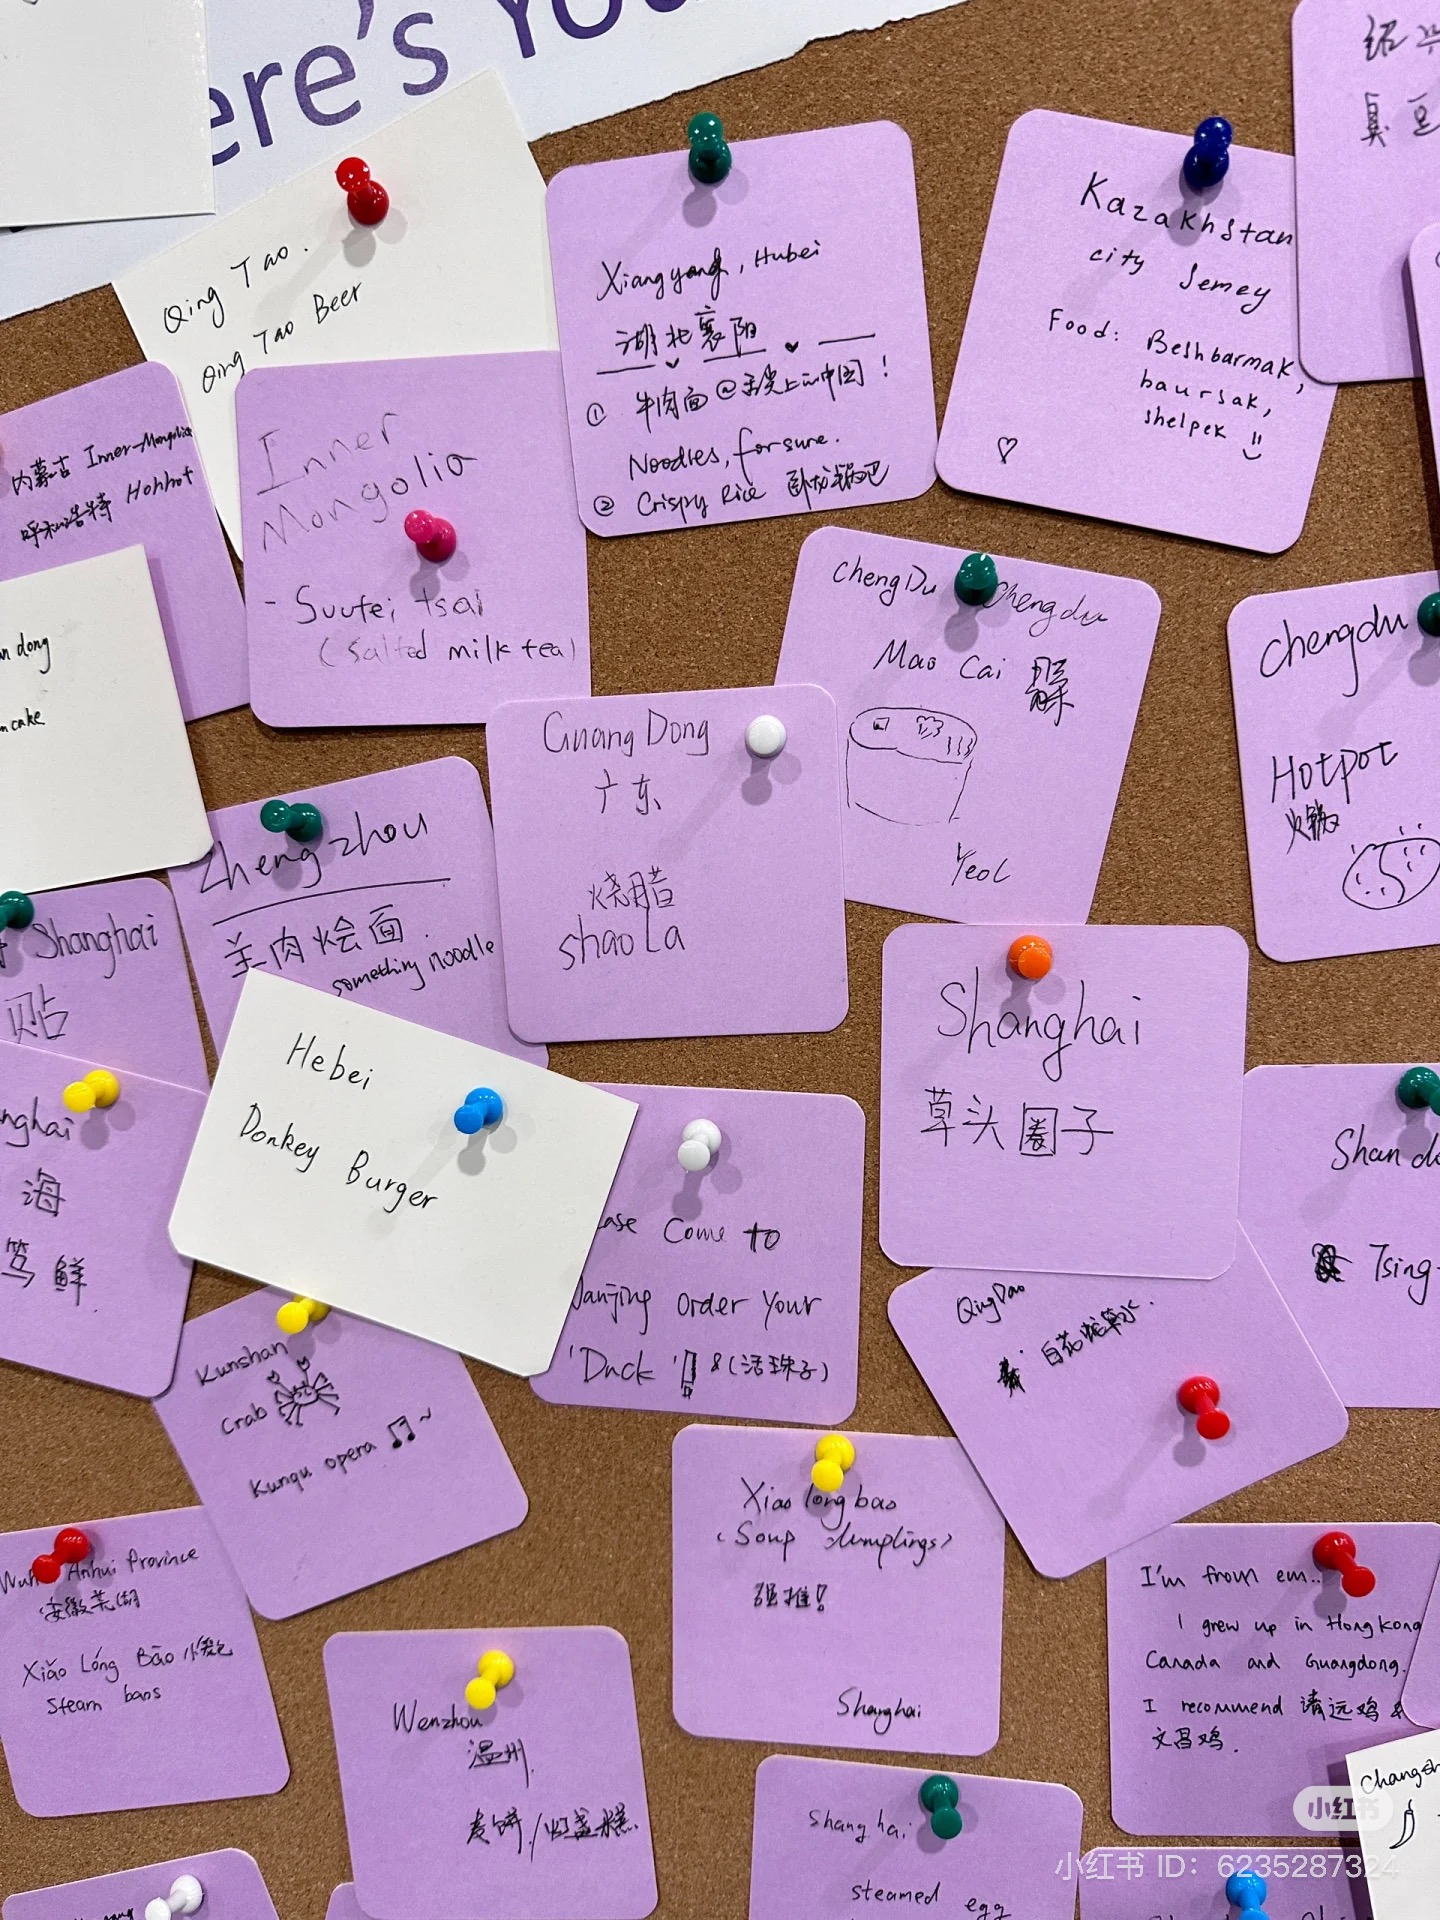 ere's You
Qing Tao.
Qing Tao Beer
Xiangyang, Hubei
湖北襄阳
① 牛肉面@舌尖上的中国!
Noodles, for sure.
② Crispy Rice 卧龙锅巴
Kazakhstan
city Semey
Food: Beshbarmak,
baursak,
shelpek
绍兴
臭豆
内蒙古 Inner-Mongolia
呼和浩特 Hohhot
Inner
Mongolia
- Suutei tsai
(salted milk tea)
n dong
ncake
ChengDu Chengdu
Mao Cai
Yeol
chengdu
Hotpot
火锅
GuangDong
广东
烧腊
shaoLa
Zhengzhou
羊肉烩面.
something noodle
Shanghai
贴
Shanghai
草头圈子
nghai
海
笃鲜.
Hebei
Donkey Burger
ease Come to
Nanjing order Your
'Duck' &(活珠子)
Shan d
Tsing-
QingDao
白花蛇草水.
Kunshan
Crab
Kunqu opera ~
Xiao long bao
(Soup dumplings)
强推!
Shanghai
Wuh Anhui Province
安徽芜湖
Xiǎo Lóng Bāo 小笼包
Steam baos
I'm from em...
I grew up in HongKong
Canada and Guangdong.
I recommend 清远鸡 &
文昌鸡.
Wenzhou
温州.
麦饼./灯盏糕.
Shanghai
steamed egg
Changsh
小红书
小红书 ID: 6235287324